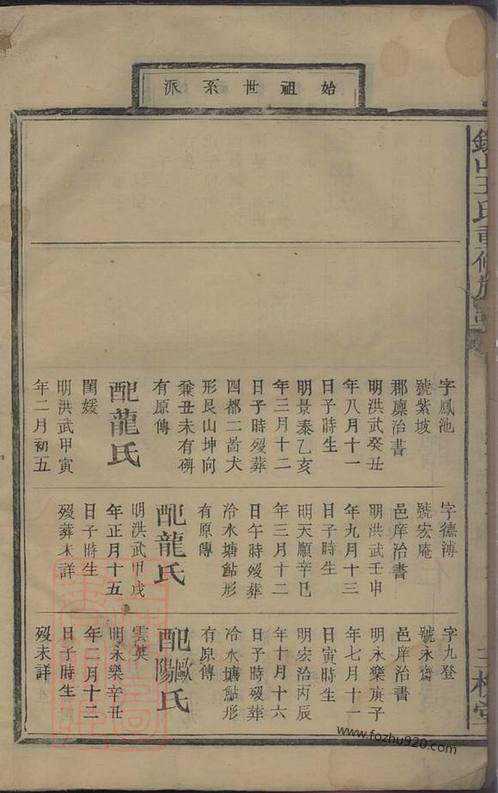 始祖世系派
王氏重修族譜
三槐堂
字鳳池
號紫坡
郡廩治書
明洪武癸丑
年八月十一
日子時生
明景泰乙亥
年三月十二
日子時歿葬
四都二啚犬
形艮山坤向
兼丑未有碑
有原傳
配龍氏
閨媛
明洪武甲寅
年二月初五
字德溥
號宏庵
邑庠治書
明洪武壬申
年九月十三
日子時生
明天順辛巳
年三月十二
日午時歿葬
冷水塘鮎形
有原傳
配龍氏
明洪武甲戌
年正月十五
日子時生
歿葬未詳
字九登
號永齋
邑庠治書
明永樂庚子
年七月十一
日寅時生
明宏治丙辰
年十月十六
日子時歿葬
冷水塘鮎形
有原傳
配歐陽氏
雲英
明永樂辛丑
年二月十二
日子時生
歿未詳
www.fozhu920.com